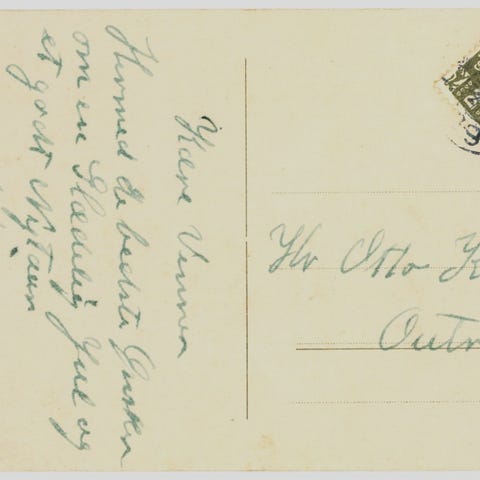 Kære Venner
Hermed de bedste Ønsker
om en Glædelig Jul og
et godt Nytaar
Hr Otto K
Outr